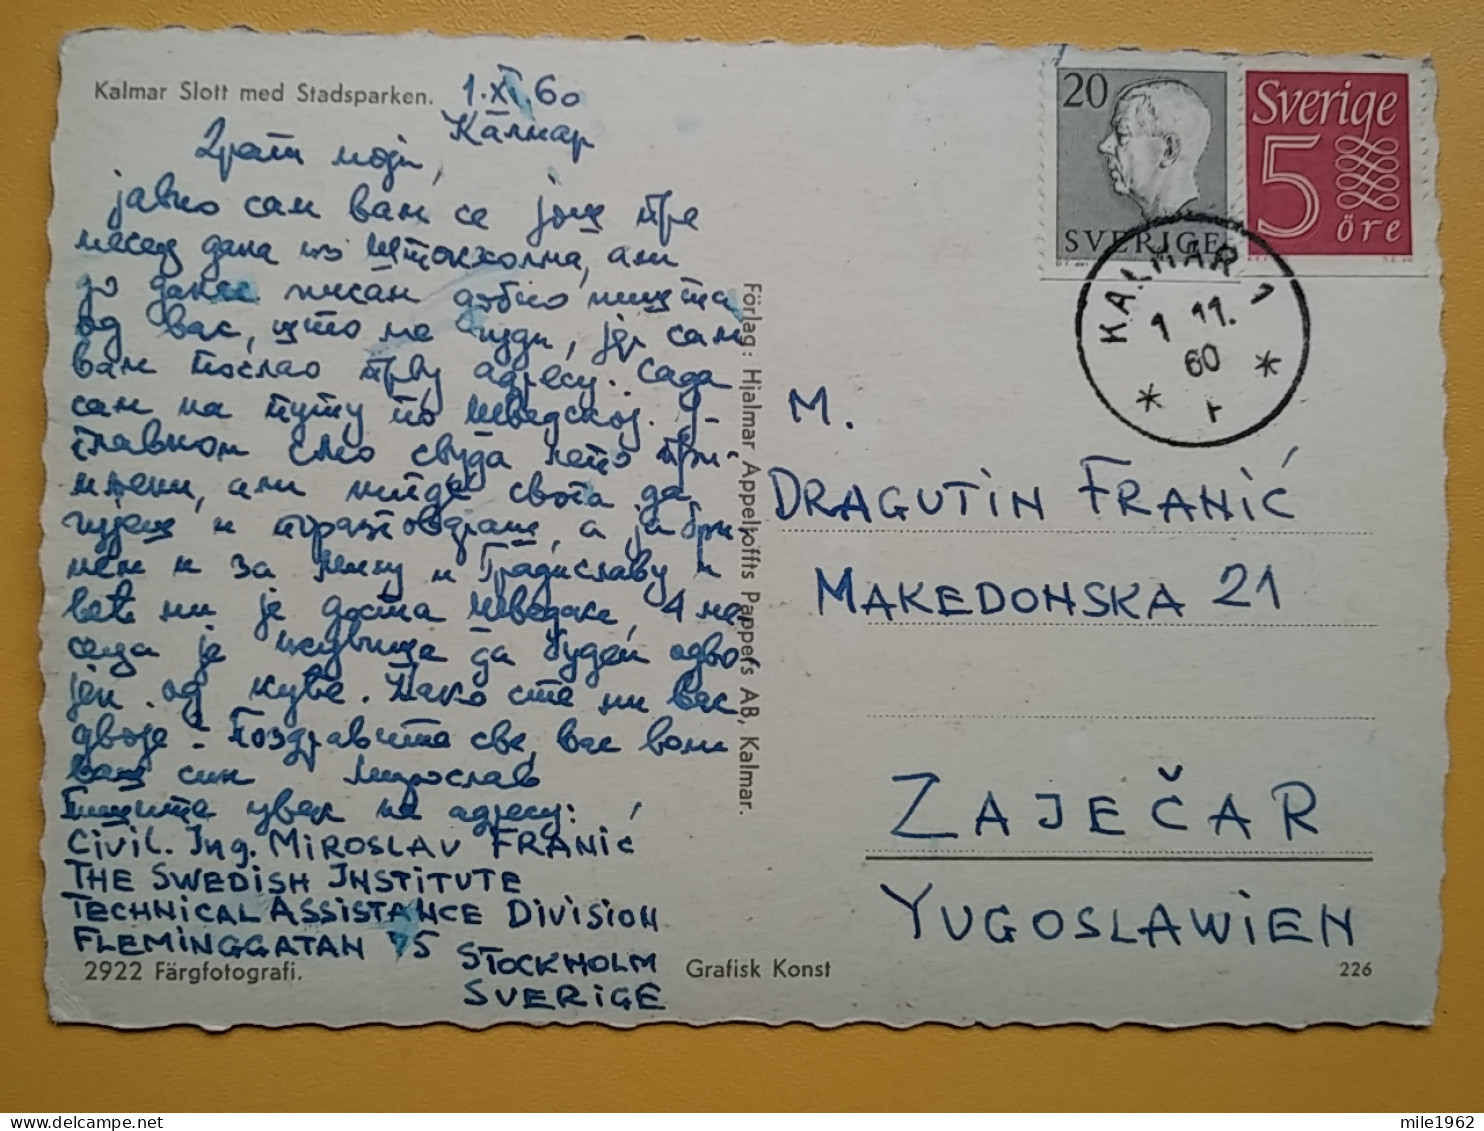 Kalmar Slott med Stadsparken.
1.XI.60
Калмар
Драги моји,
јавио сам вам се још пре
месец дана из Штокхолма, али
до данас нисам добио ништа
од вас, што ме чуди, јер сам
вам послао прву адресу. Сада
сам на путу по Шведској. У-
главном смо свуда лепо при-
мљени, али нигде својта да
чујеш и поразговараш, а ја бри-
нем и за Мину и Градиславу и
већ ми је доста Шведске, 4 ме-
сеца је исувише да будем одво-
јен од куће. Како сте ми вас
двоје - Поздравите све, вас воли
ваш син Мирослав
Пишите увек на адресу:
CIVIL. ING. MIROSLAV FRANIĆ
THE SWEDISH INSTITUTE
TECHNICAL ASSISTANCE DIVISION
FLEMINGGATAN 75 STOCKHOLM
SVERIGE
2922 Färgfotografi.
Förlag: Hjalmar Appeltoffts Pappers AB, Kalmar.
Grafisk Konst
226
20
SVERIGE
Sverige
5
öre
KALMAR 1
1 11.
60
M.
DRAGUTIN FRANIĆ
MAKEDONSKA 21
ZAJEČAR
YUGOSLAWIEN
mile1962